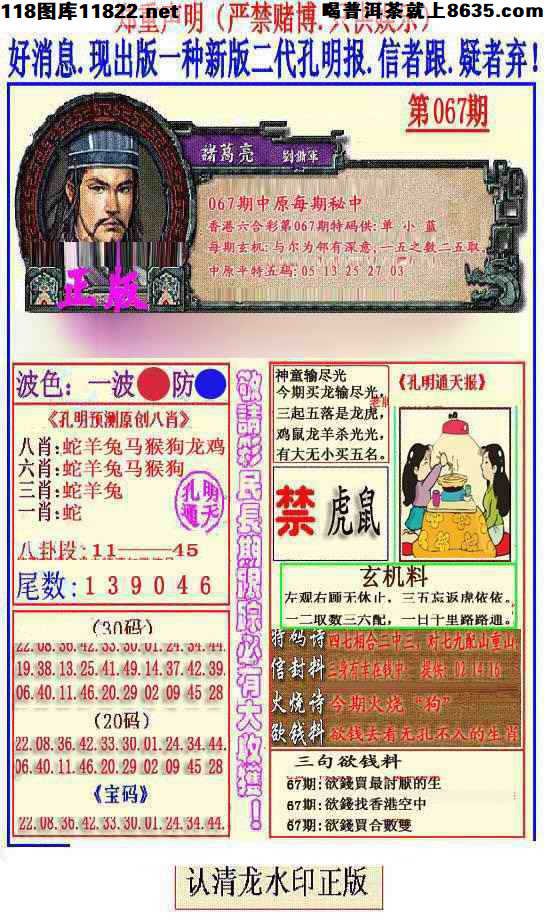 118图库11822.net
喝普洱茶就上8635.com
郑重声明（严禁赌博.只供娱乐）
好消息.现出版一种新版二代孔明报.信者跟.疑者弃！
第067期
諸葛亮
067期中原每期秘中
香港六合彩第067期特码供:单 小 蓝
每期玄机:与尔为邻有深意;一五之数二五取
中原平特五码:05 13 25 27 03
正版
波色：一波 防
《孔明预测原创八肖》
八肖:蛇羊兔马猴狗龙鸡
六肖:蛇羊兔马猴狗
三肖:蛇羊兔
一肖:蛇
孔明通天
八卦段:11——45
尾数:139046
敬請彩民長期跟踪必有大收獲！
神童输尽光
今期买龙输尽光,
三起五落是龙虎,
鸡鼠龙羊杀光光,
有大无小买五名。
《孔明通天报》
禁 虎鼠
玄机料
左观右顾无休止，三五忘返虎依依。
一二取数三六配，一日千里路路通。
(30码)
22.08.36.42.33.30.01.24.34.44.
19.38.13.25.41.49.14.37.42.39.
06.40.11.46.20.29 02 09 45 28
(20码)
22.08.36.42.33.30.01.24.34.44.
06.40.11.46.20.29 02 09 45 28
《宝码》
22.08.36.42.33.30.01.24.34.44.
特码诗 四七相合二中三，对七九配山重山
信封料
火烧诗 今期火烧“狗”
欲钱料 欲钱去看无孔不入的生肖
三句欲钱料
67期:欲錢買最討厭的生
67期:欲錢找香港空中
67期:欲錢買合數雙
认清龙水印正版